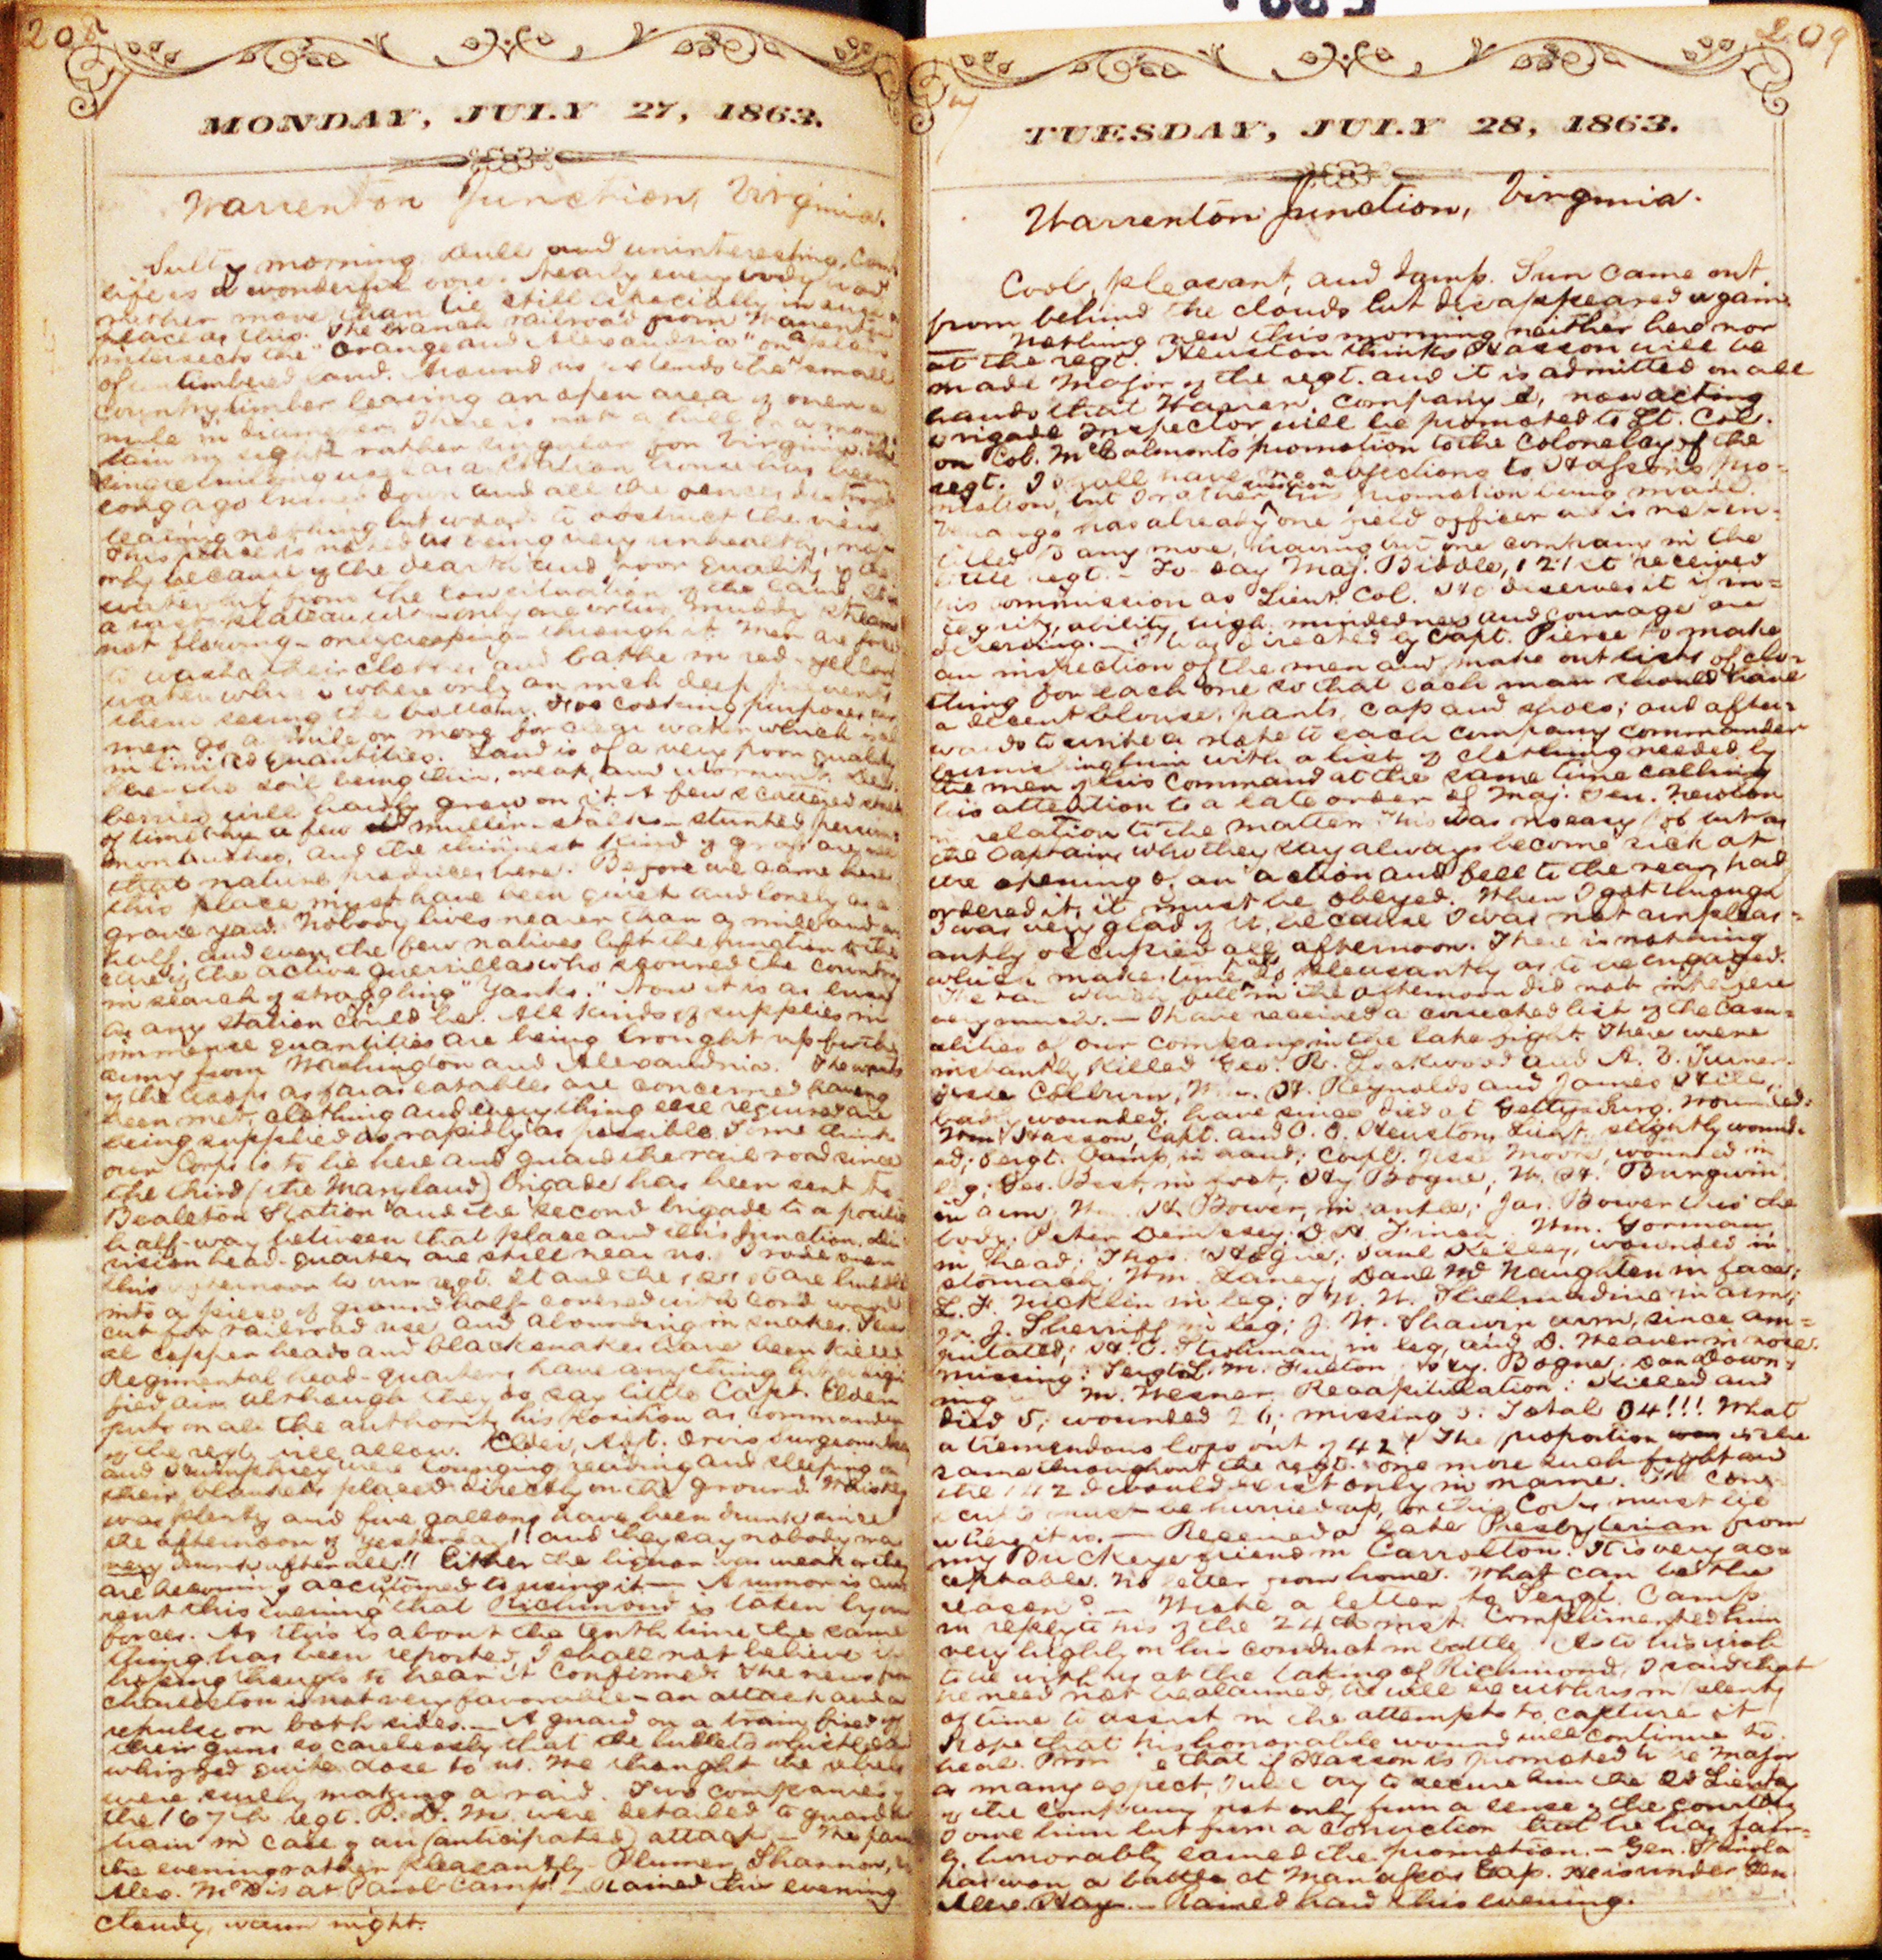 208
MONDAY, JULY 27, 1863.
Warrenton Junction, Virginia.
Sultry morning. Dull and uninteresting. Camp
life is a wonderful bore. Nearly every body would
rather move than lie still especially in such a
place as this. The branch railroad from Warrenton
intersects the "Orange and Alexandria" on a plain
of untimbered land. Around us extends the small
country timber leaving an open area of over a
mile in diameter. There is not a hill or a moun-
tain in sight rather singular for Virginia. The
single building used as a station house has been
long ago burned down and all the fences destroyed
leaving nothing but woods to obstruct the view.
This place is noted as being very unhealthy, not
only because of the dearth and poor quality of the
water but from the low situation of the land. It is
a vast plateau with only one or two muddy streams
not flowing - only creeping - through it. Men are forced
to wash their clothes and bathe in red-yellow
water which where only an inch deep prevents
them seeing the bottom. For cooking purposes our
men go a mile or more for clear water which is
in limited quantities. Land is of a very poor quality
the soil being thin, weak, and wornout. Dew-
berries will hardly grow on it. A few scattered
of timothy a few mullein-stalks - stunted persim-
mon bushes, and the thinnest kind of grass are all
that nature produces here. Before we came here
this place must have been quiet and lonely as a
grave yard. Nobody lives nearer than a mile and a
half, and even the few natives left the junction to the
care of the active guerrillas who scoured the country
in search of straggling "Yanks." Now it is as busy
as any station could be. All kinds of supplies in
immense quantities are being brought up for the
army from Washington and Alexandria. The wants
of the troops as far as eatables are concerned having
been met, clothing and every thing else required are
being supplied as rapidly as possible. Some think
our Corps is to lie here and guard the rail road since
the third (the Maryland) brigade has been sent to
Bealeton Station and the second brigade to a position
half-way between that place and this Junction. Di-
vision head-quarters are still near us. I rode over
this afternoon to our regt. It and the are huddled
into a piece of ground half-covered with cord wood
cut for railroad use and abounding in snakes. Sever-
al copper heads and black snakes have been killed.
Regimental head-quarters have anything but a digni-
fied air although they do say little Capt. Elder
puts on all the authority his position as commander
of the regt. will allow. Elder, Adjt. Orvis Surgeon
and Humphrey were lounging reading and sleeping on
their blankets placed directly on the ground. Whiskey
was plenty and five gallons have been drunk since
the afternoon of yesterday!! and they say nobody was
very drunk after all!! Either the liquor was weak or they
are becoming accustomed to using it — A rumor is cur-
rent this evening that Richmond is taken by our
forces. As this is about the tenth time the same
thing has been reported, I shall not believe it
hoping though to hear it confirmed. The news from
Charleston is not very favorable - an attack and a
repulse on both sides. — A guard on a train fired off
their guns so carelessly that the bullets whistled and
whizzed quite close to us. We thought the rebels
were surely making a raid. Two companies of
the 167th regt. P. D. M. were detailed to guard the
train in case of an (anticipated) attack — We passed
the evening rather pleasantly - Plumer, Shannon,
Alex. McD is at Parole Camp! — Rained this evening
Cloudy, warm night.
209
TUESDAY, JULY 28, 1863.
Warrenton Junction, Virginia.
Cool, pleasant, and damp. Sun came out
from behind the clouds but disappeared again.
— Nothing new this morning neither here nor
at the regt. Heuston thinks Hasson will be
made Major of the regt. and it is admitted on all
hands that Warren, Company E, now acting
brigade Inspector will be promoted to Lt. Col.
on Col. McCalmont's promotion to the Colonelcy of the
regt. I shall have no objections to Hasson's pro-
motion, but I rather his promotion being made.
Venango has already one field officer and is not en-
titled to any more, having but one company in the
little regt. — To-day Maj. Biddle, 121st received
his commission as Lieut. Col. He deserves it if in-
tegrity, ability, high-mindedness and courage are
deserving. — I was directed by Capt. Pierce to make
an inspection of the men and make out lists of clo-
thing for each one so that each man should have
a decent blouse, pants, cap and shoes; and after-
wards to write a note to each company commander
furnishing him with a list of clothing needed by
the men of his command at the same time calling
his attention to a late order of Maj. Gen. Newton
in relation to the matter. This was no easy job but as
the Captain, who they say always become sick at
the opening of an action and fell to the rear, had
ordered it, it must be obeyed. When I got through
I was very glad of it, because I was not unpleas-
antly occupied all afternoon. There is nothing
which makes time pass so pleasantly as to be engaged.
The rain which fell in the afternoon did not interfere
very much. — I have received a corrected list of the casu-
alties of our company in the late fight. There were
instantly killed Geo. R. Lockwood and A. D. Turner.
Jesse Colburn, Wm. H. Reynolds and James Still,
badly wounded, have since died at Gettysburg. Wounded:
Wm. Hasson, Capt. and O. O. Heuston, Lieut. slightly wound-
ed; Sergt. Camp, in hand; Corpl. Jesse Moore, wounded in
leg; Geo. Best, in foot; Hy Bogue, W. H. Bunnwin
in arm; Wm. H. Bower, in ankle; Jas. Bower thro' the
body; Peter Dempsey; D. A. Finch; Wm. Gorman
in head; Thos. Hogue; Saml Kelley, wounded in
stomach; Wm. Laney; Danl McNaughten in face;
L. F. Nicklin in leg; J. W. W. Shelmadine in arm;
J. Sherriff in leg; J. W. Shaw in arm, since am-
putated; H. C. Strohman, in leg, and D. Weaver in nose.
Missing: Sergt. L. M. Fulton; Hy. Bogue; Dan Down-
ing; M. Wesner. Recapitulation: Killed and
died 5; wounded 26; missing 3: Total 34!!! What
a tremendous loss out of 42! The proportion is the
same throughout the regt. One more such fight and
the 142d would exist only in name. The Con-
scripts must be hurried up, or this Corps must lie
where it is. — Received a late Presbyterian from
my Buckeye friend in Carrolton. It is very ac-
ceptable. No letter from home. What can be the
reason? — Wrote a letter to Sergt. Camp
in reply to his of the 24th inst. Complimented him
very highly on his conduct in battle. As to his wish
to be with us at the taking of Richmond, I said that
he need not be alarmed, he will be with us in plenty
of time to assist in the attempts to capture it.
Hope that his honorable wound will continue to
heal. Promise that if Hasson is promoted to be Major
as many expect, I will try to secure him the 2d Lieutcy
of the company not only from a sense of the courtesy
I owe him but from a conviction that he has fair-
ly, honorably earned the promotion. — Gen. Spinola
has won a battle at Manassas Gap. He is under Gen
Alex. Hay. — Rained hard this evening.